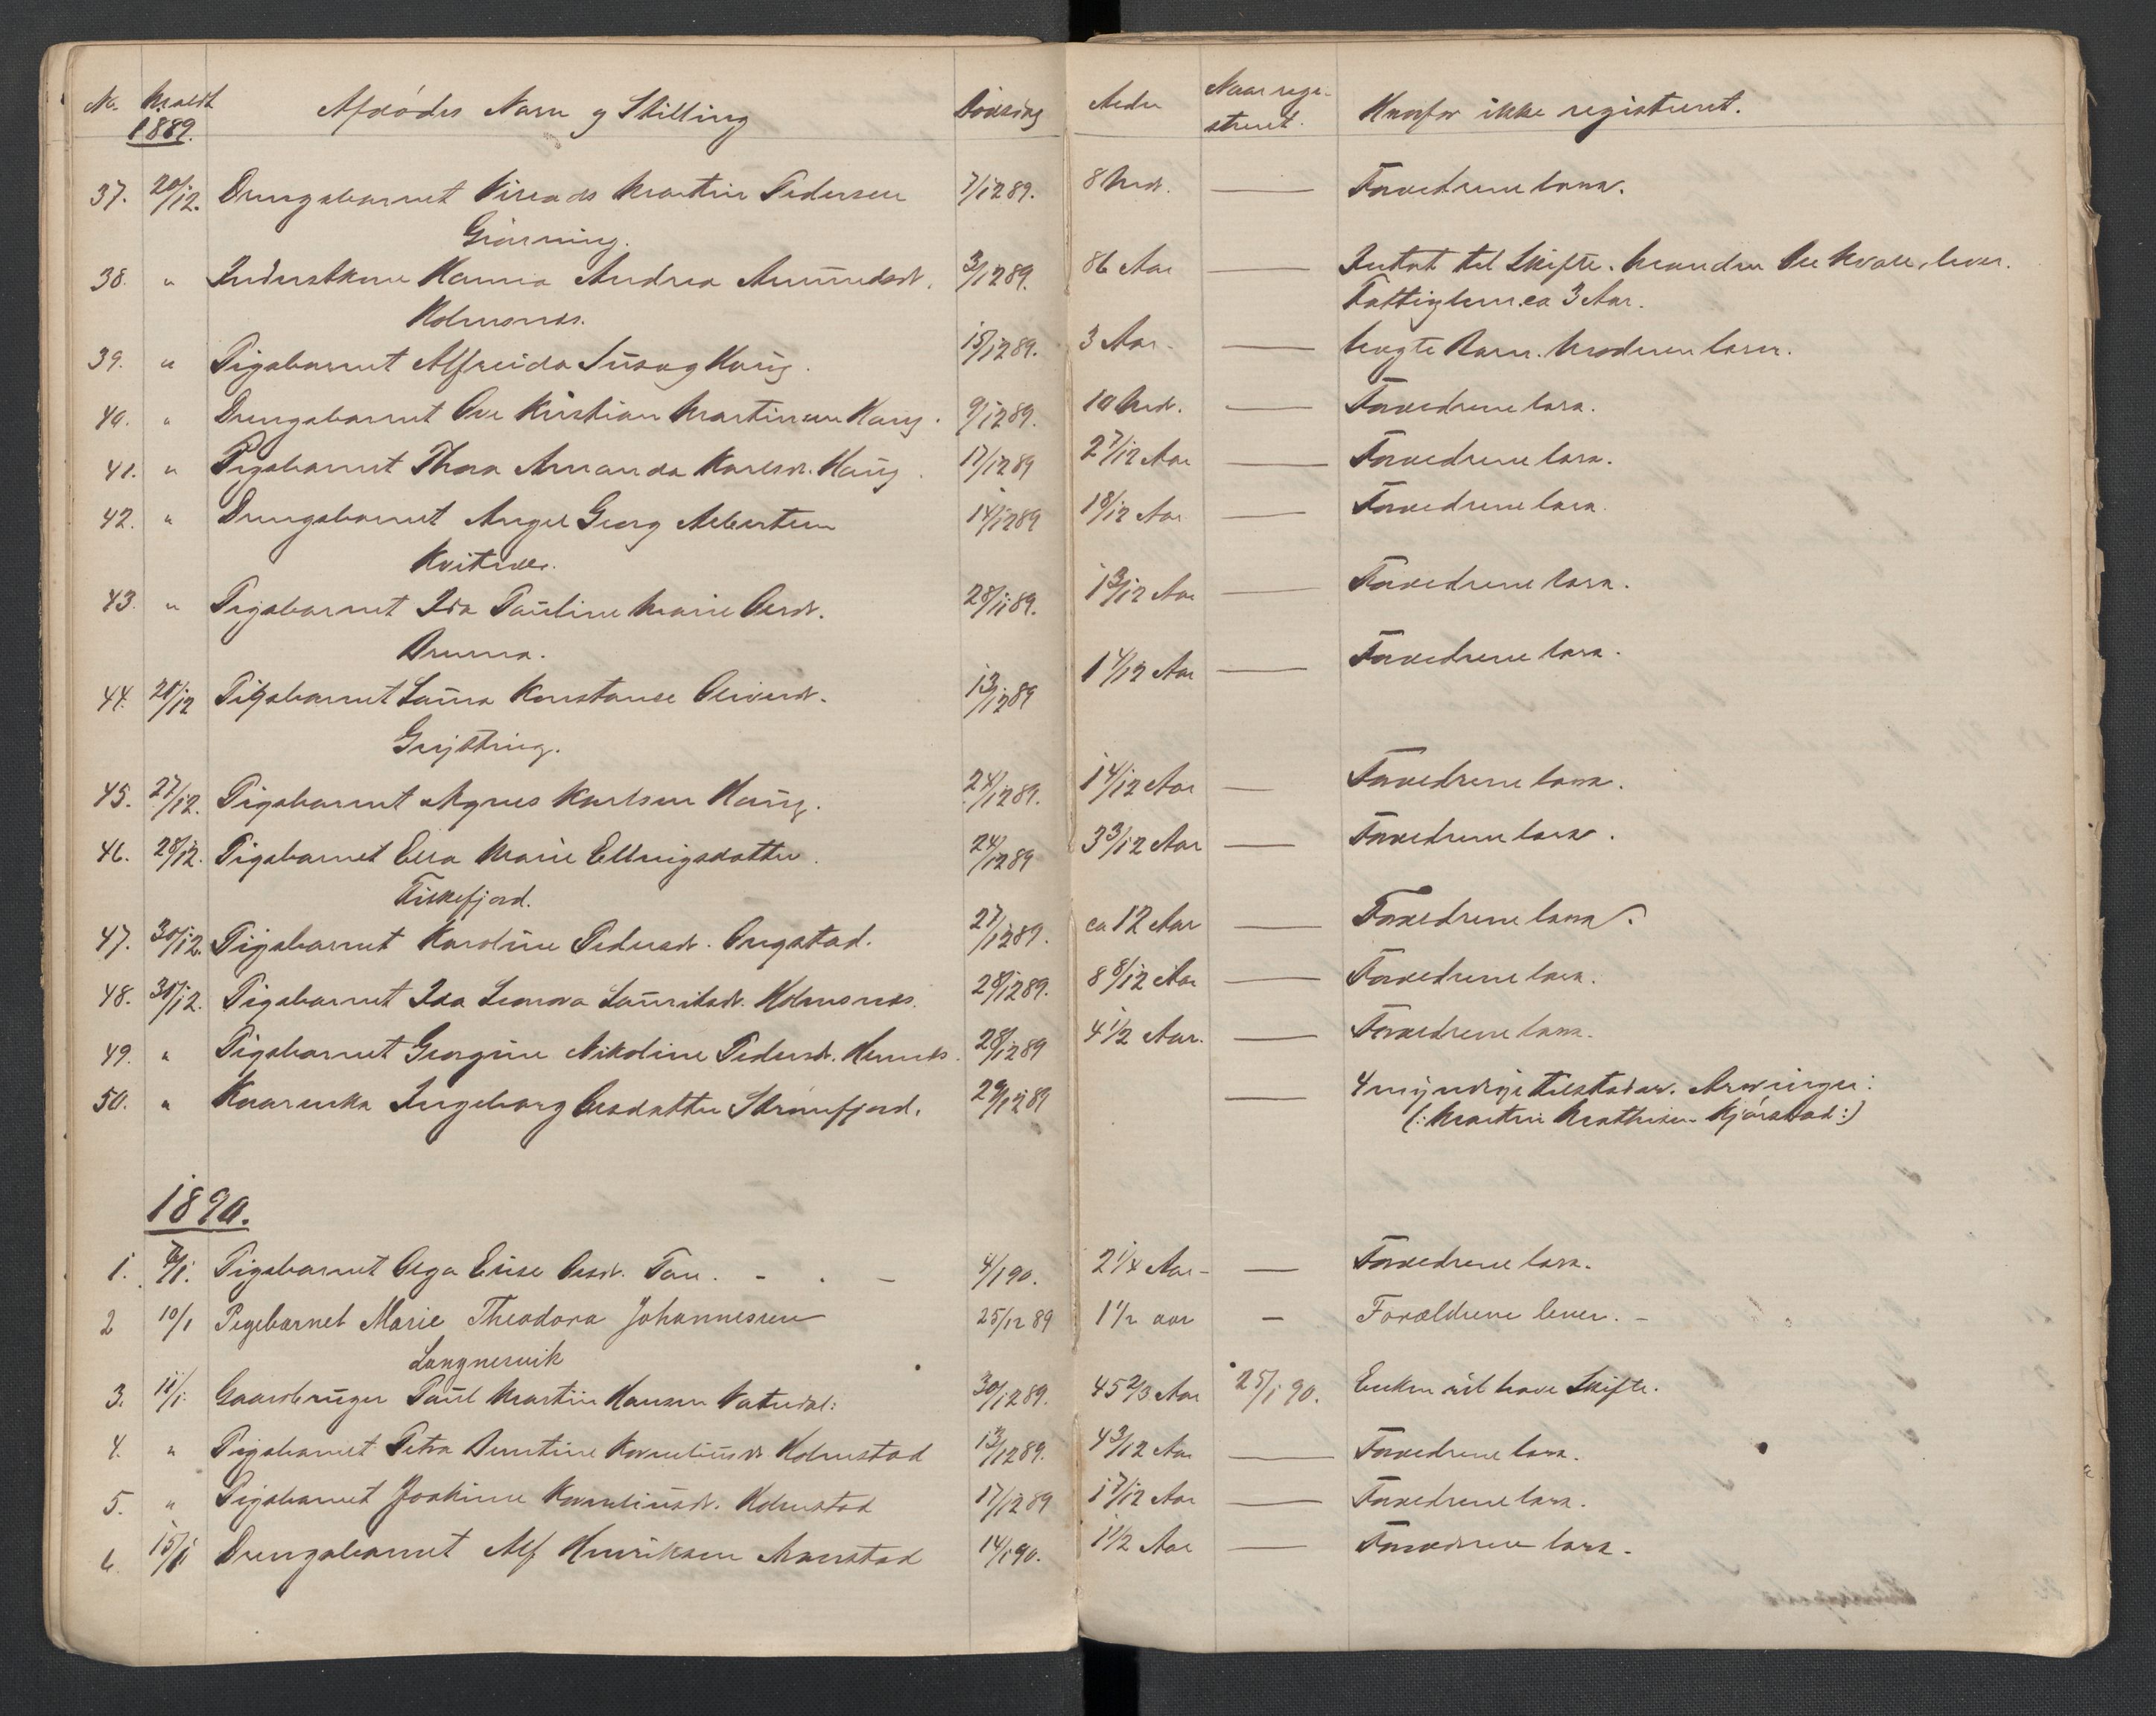 No. Meldt 1889. Afdødes Navn og Stilling Dødsdag Alder Naar regi-
streret. Hvorfor ikke registreret.
37. 20/12. Drengebarnet Martin Pedersen 7/12 89. 8 Md. — Forældrene leva.
Gjærning.
38. " Inderstkone Hanna Andrea Amundsdt. 3/12 89. 86 Aar — Intet til Skifte. Manden Ole lever.
Holmsnes. Fattiglem ca 3 Aar.
39. " Pigebarnet Alfreida Haug. 15/12 89. 3 Aar. — Uægte Barn. Moderen lever.
40. " Drengebarnet Ove Kristian Martinsen Haug. 9/12 89. 10 Md. — Forældrene leva.
41. " Pigebarnet Thora Amanda Karlsdt. Haug. 17/12 89 2 7/12 Aar — Forældrene leva.
42. " Drengebarnet Angel Georg Albertsen 14/12 89 1 8/12 Aar — Forældrene leva.
Kvitnes.
43. " Pigebarnet Ida Pauline Marie Olsdt. 28/11 89. 1 3/12 Aar — Forældrene leva.
Drevna.
44. 21/12 Pigebarnet Laura Konstanse Oliverdt. 13/12 89 1 4/12 Aar — Forældrene leva.
Grytting.
45. 27/12. Pigebarnet Agnes Karlsen Haug. 24/12 89. 1 4/12 Aar — Forældrene leva.
46. 28/12. Pigebarnet Elea Marie Ellingsdatter. 24/12 89 3 3/12 Aar — Forældrene leva.
Fiskefjord.
47. 30/12. Pigebarnet Karoline Pedersdt. Ongstad. 27/12 89. ca 12 Aar — Forældrene leva.
48. 31/12. Pigebarnet Ida Leonora Lauritsdt. Holmsnes. 28/12 89. 8 8/12 Aar — Forældrene leva.
49. " Pigebarnet Georgine Nikoline Pedersdt. Hennes. 28/12 89 4 1/2 Aar. — Forældrene leva.
50. " Kaarenka Ingeborg Olsdatter Strømfjord. 29/12 89 — 4 myndige tilstedev. Arvinger.
(: Martin Mathisen Kjørstad :)
1890.
1. 7/1. Pigebarnet Olga Elise Olsdt. . - . - 4/1 90. 2 1/4 Aar - — Forældrene leva.
2 10/1 Pigebarnet Marie Theodora Johannesen 25/12 89 1 1/2 aar — Forældrene lever. -
Langnesvik
3. 11/1. Gaardbruger Paul Martin Hansen Vatndal. 30/12 89. 45 2/3 Aar 25/1 90. Enken vil have Skifte.
4. " Pigebarnet Petra Berntine Korneliusdt. Holmstad 13/12 89. 4 3/12 Aar — Forældrene leva.
5. " Pigebarnet Joakime Korneliusdt. Holmstad 17/12 89 1 7/12 Aar — Forældrene leva.
6. 15/1 Drengebarnet Alf Henriksen Maarstad 14/1 90. 1 1/2 Aar — Forældrene leva.